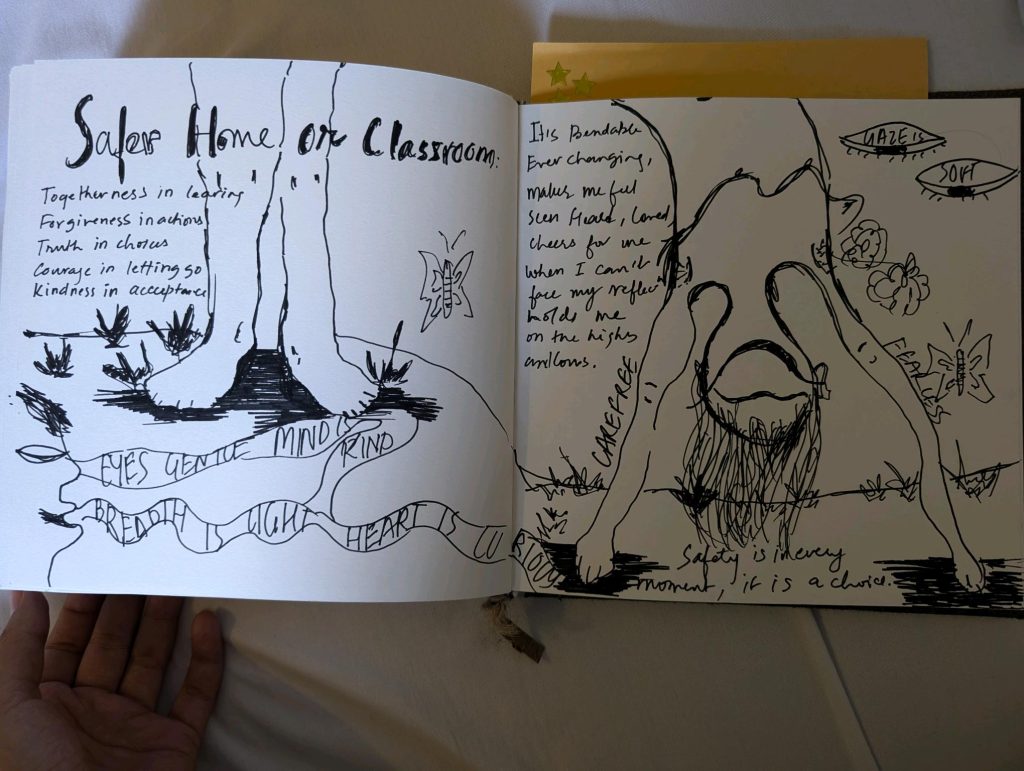 Safer Home or Classroom:
Togetherness in learing
Forgiveness in actions
Truth in choices
Courage in letting go
Kindness in acceptance
EYES GENTLE MIND IS
KIND
BREDDTH IS LIGHT HEART IS CU
RIOUS
It is Bendable
Ever changing,
makes me feel
seen Heard, Loved
cheers for me
when I can't
face my reflec
holds me
on the highs
and lows.
GAZE IS
SOFT
CAREFREE
FEARLESS
Safety is in every
moment, it is a choice.